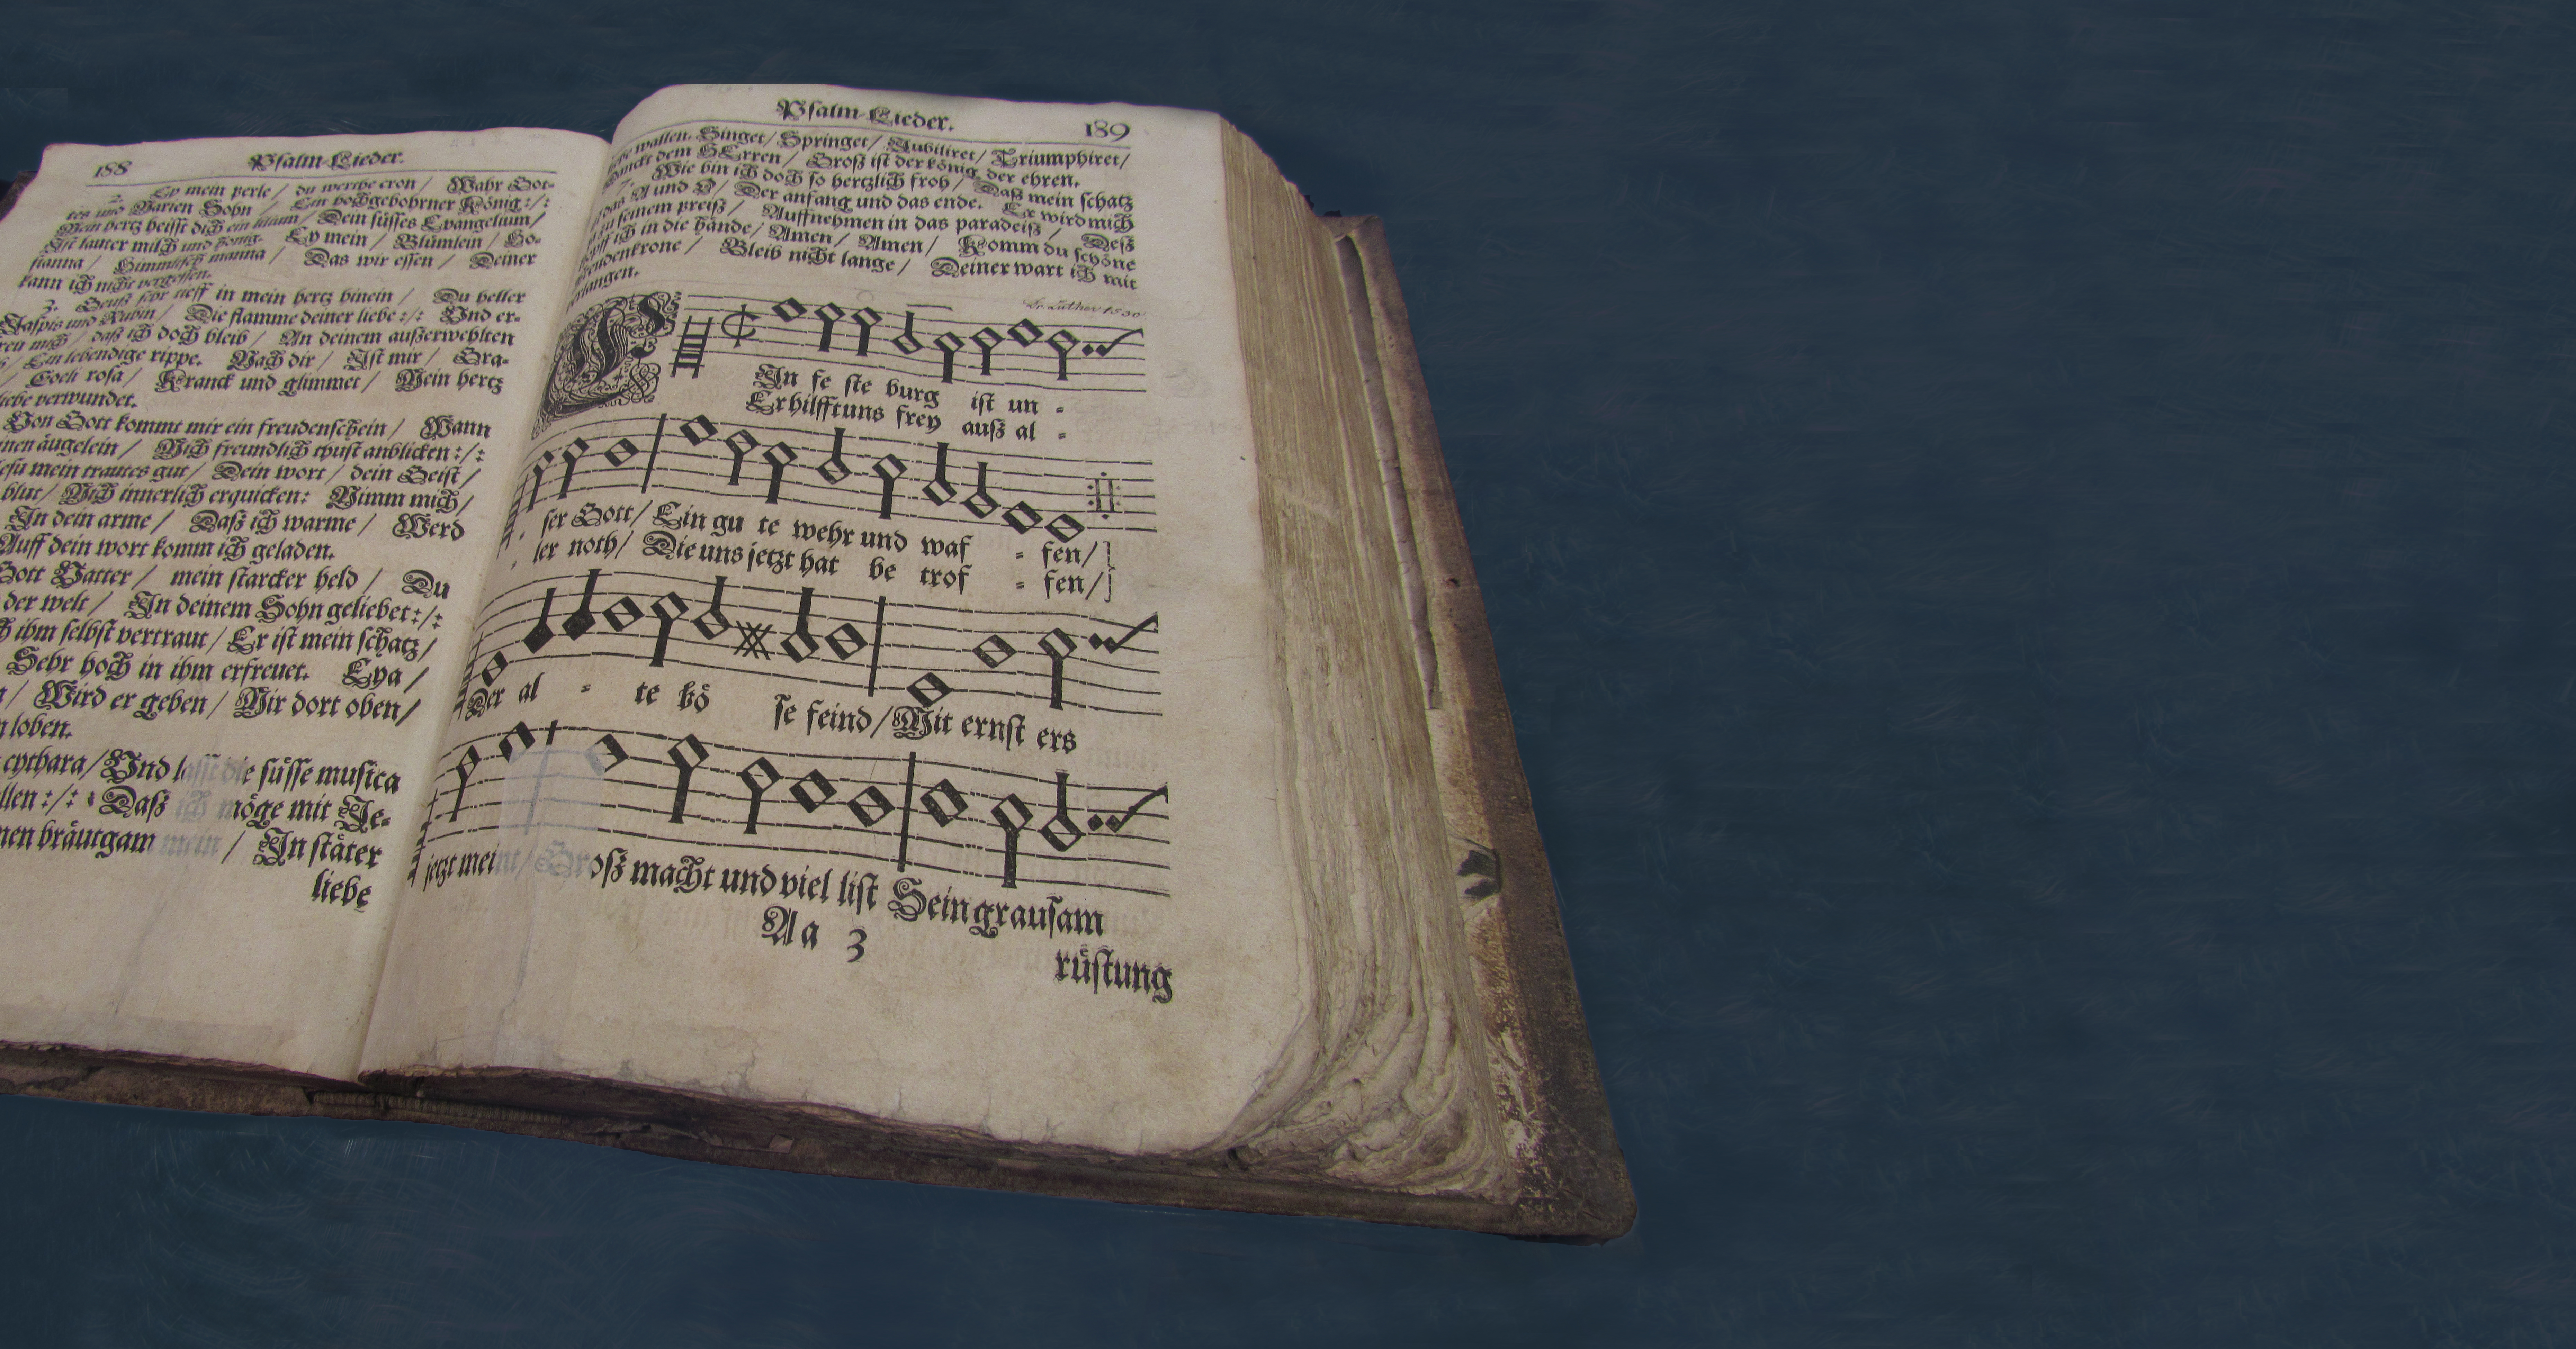 188 Psalm-Lieder.
2. Ey mein perle / du werthe cron / Wahr Got-
tes und Marien Sohn / Ein hochgebohrner König :/:
Mein hertz heisst dich ein blum / Dein süsses Evangelium /
Ist lauter milch und honig. Ey mein / Blümlein / Ho-
sianna / Himmlisch manna / Das wir essen / Deiner
kann ich nicht vergessen.
3. Geuß sehr tieff in mein hertz hinein / Du heller
Jaspis und Rubin / Die flamme deiner liebe :/: Und er-
freu mich / daß ich doch bleib / An deinem außerwehlten
/ Ein lebendige rippe. Nach dir / Ist mir / Gra-
/ Coeli rosa / Kranck und glimmet / Mein hertz
liebe verwundet.
Von Gott kommt mir ein freudenschein / Wann
äugelein / Mich freundlich thust anblicken :/:
mein trautes gut / Dein wort / dein Geist /
blut / Mich innerlich erquicken: Nimm mich /
In dein arme / Daß ich warme / Werd
Auff dein wort komm ich geladen.
Gott Vatter / mein starcker held / Du
der welt / In deinem Sohn geliebet :/:
ihm selbst vertraut / Er ist mein schatz /
Sehr hoch in ihm erfreuet. Eya /
/ Wird er geben / Mir dort oben /
loben.
cythara / Und lasst die süsse musica
:/: Daß ich möge mit Je-
bräutgam mein / In stäter
liebe
Psalm-Lieder. 189
wallen. Singet / Springet / Jubiliret / Triumphiret /
Danckt dem HErren / Groß ist der könig der ehren.
7. Wie bin ich doch so hertzlich froh / Daß mein schatz
ist das A und O / Der anfang und das ende. Er wird mich
zu seinem preiß / Auffnehmen in das paradeiß / Deß
ich in die hände / Amen / Amen / Komm du schöne
freudenkrone / Bleib nicht lange / Deiner wart ich mit
verlangen.
Dr. Luther 1530
EIn fe ste burg ist un -
Er hilfft uns frey auß al -
ser Gott / Ein gu te wehr und waf - fen / ]
ler noth / Die uns jetzt hat be trof - fen / ]
Der al - te bö se feind / Mit ernst ers
jetzt meint / Groß macht und viel list Sein grausam
Aa 3
rüstung